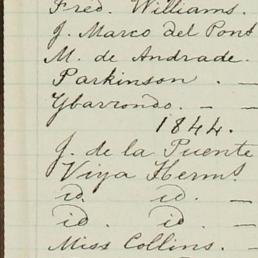 Fred. Williams.
J. Marco del Pont
M. de Andrade.
Parkinson. —
Ybarrondo. — —
1844.
J. de la Puente
Viya Herms.
id. id. —
id. id. —
Miss Collins. —